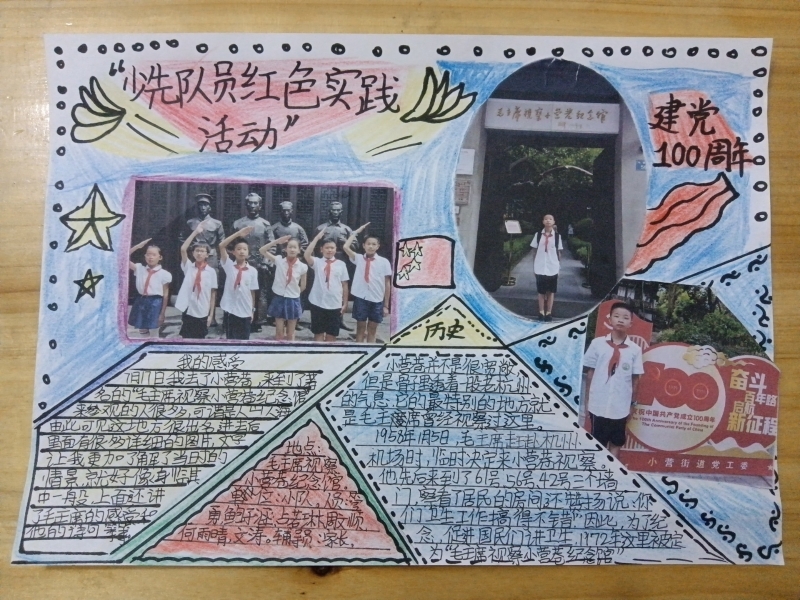 “少先队员红色实践
活动”
建党
100周年
毛主席视察小营巷纪念馆
历史
我的感受
7月7日我去了小营巷，来到了著
名的“毛主席视察小营巷纪念馆”
来参观的人很多，可谓是人山人海
由此可见这地方很出名进去后
里面有很多详细的图片，文字
让我更加了解了当时的
情景，就好像身临其
中一般，上面还讲
了毛主席的
地点：
毛主席视察
小营巷纪念馆
小队
何雨晴，文涛。辅导员：家长
小营巷并不是很宽敞
但是骨子里透着一股老杭州
的气息，它的最特别的地方就
是毛主席曾经视察过这里。
1958年1月5日，毛主席赴杭州，
机场时，临时决定来小营巷视察
他先后来到了61号，56号，42号三个墙
门，察看了居民的房间还
们卫生工作搞得不错”因此，为了纪
念，促进国民们讲卫生，1972年这里被定
为“毛主席视察小营巷纪念馆”
100
庆祝中国共产党成立100周年
The 100th Anniversary of the Founding of
The Communist Party of China
奋斗
百年路
启航
新征程
小营街道党工委